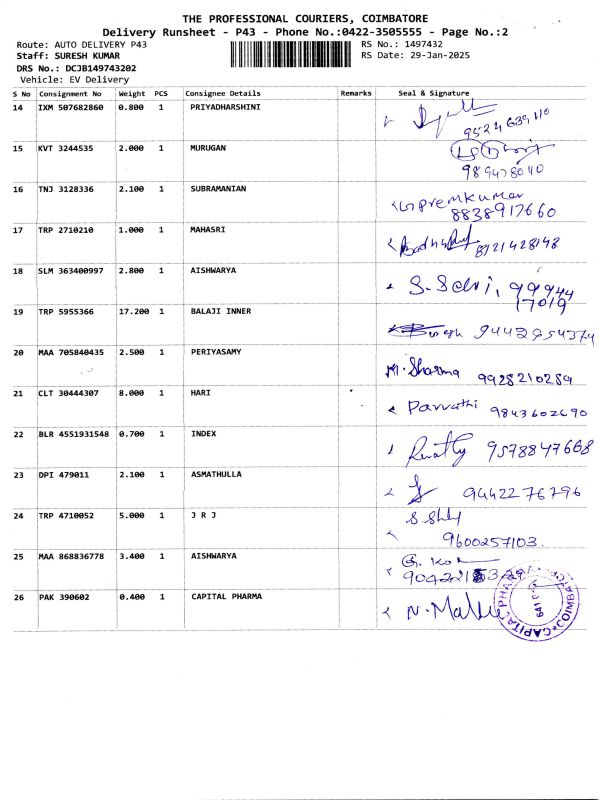 THE PROFESSIONAL COURIERS, COIMBATORE
Delivery Runsheet - P43 - Phone No.:0422-3505555 - Page No.:2
Route: AUTO DELIVERY P43 RS No.: 1497432
Staff: SURESH KUMAR RS Date: 29-Jan-2025
DRS No.: DCJB149743202
Vehicle: EV Delivery
S No Consignment No Weight PCS Consignee Details Remarks Seal & Signature
14 IXM 507682860 0.800 1 PRIYADHARSHINI
15 KVT 3244535 2.000 1 MURUGAN
989478040
16 TNJ 3128336 2.100 1 SUBRAMANIAN premkumar
8838917660
17 TRP 2710210 1.000 1 MAHASRI 8721428148
18 SLM 363400997 2.800 1 AISHWARYA S. Selvi, 99944
17019
19 TRP 5955366 17.200 1 BALAJI INNER
20 MAA 705840435 2.500 1 PERIYASAMY M. Sharma 9928210289
21 CLT 30444307 8.000 1 HARI Parvathi 9843602690
22 BLR 4551931548 0.700 1 INDEX 9578847668
23 DPI 479011 2.100 1 ASMATHULLA 94422 76796
24 TRP 4710052 5.000 1 J R J
9600257103.
25 MAA 868836778 3.400 1 AISHWARYA
26 PAK 390602 0.400 1 CAPITAL PHARMA
CAPITAL PHARMA COIMBATORE